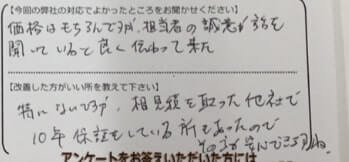 【今回の弊社の対応でよかったところをお聞かせください】
価格はもちろんですが、担当者の誠意が
聞いていると良く伝わって来た
【改善した方がいい所を教えて下さい】
特にないですが、相見積を取った他社で
10年保証をしている所もあったので
その方が
アンケートをお答えいただいた方には